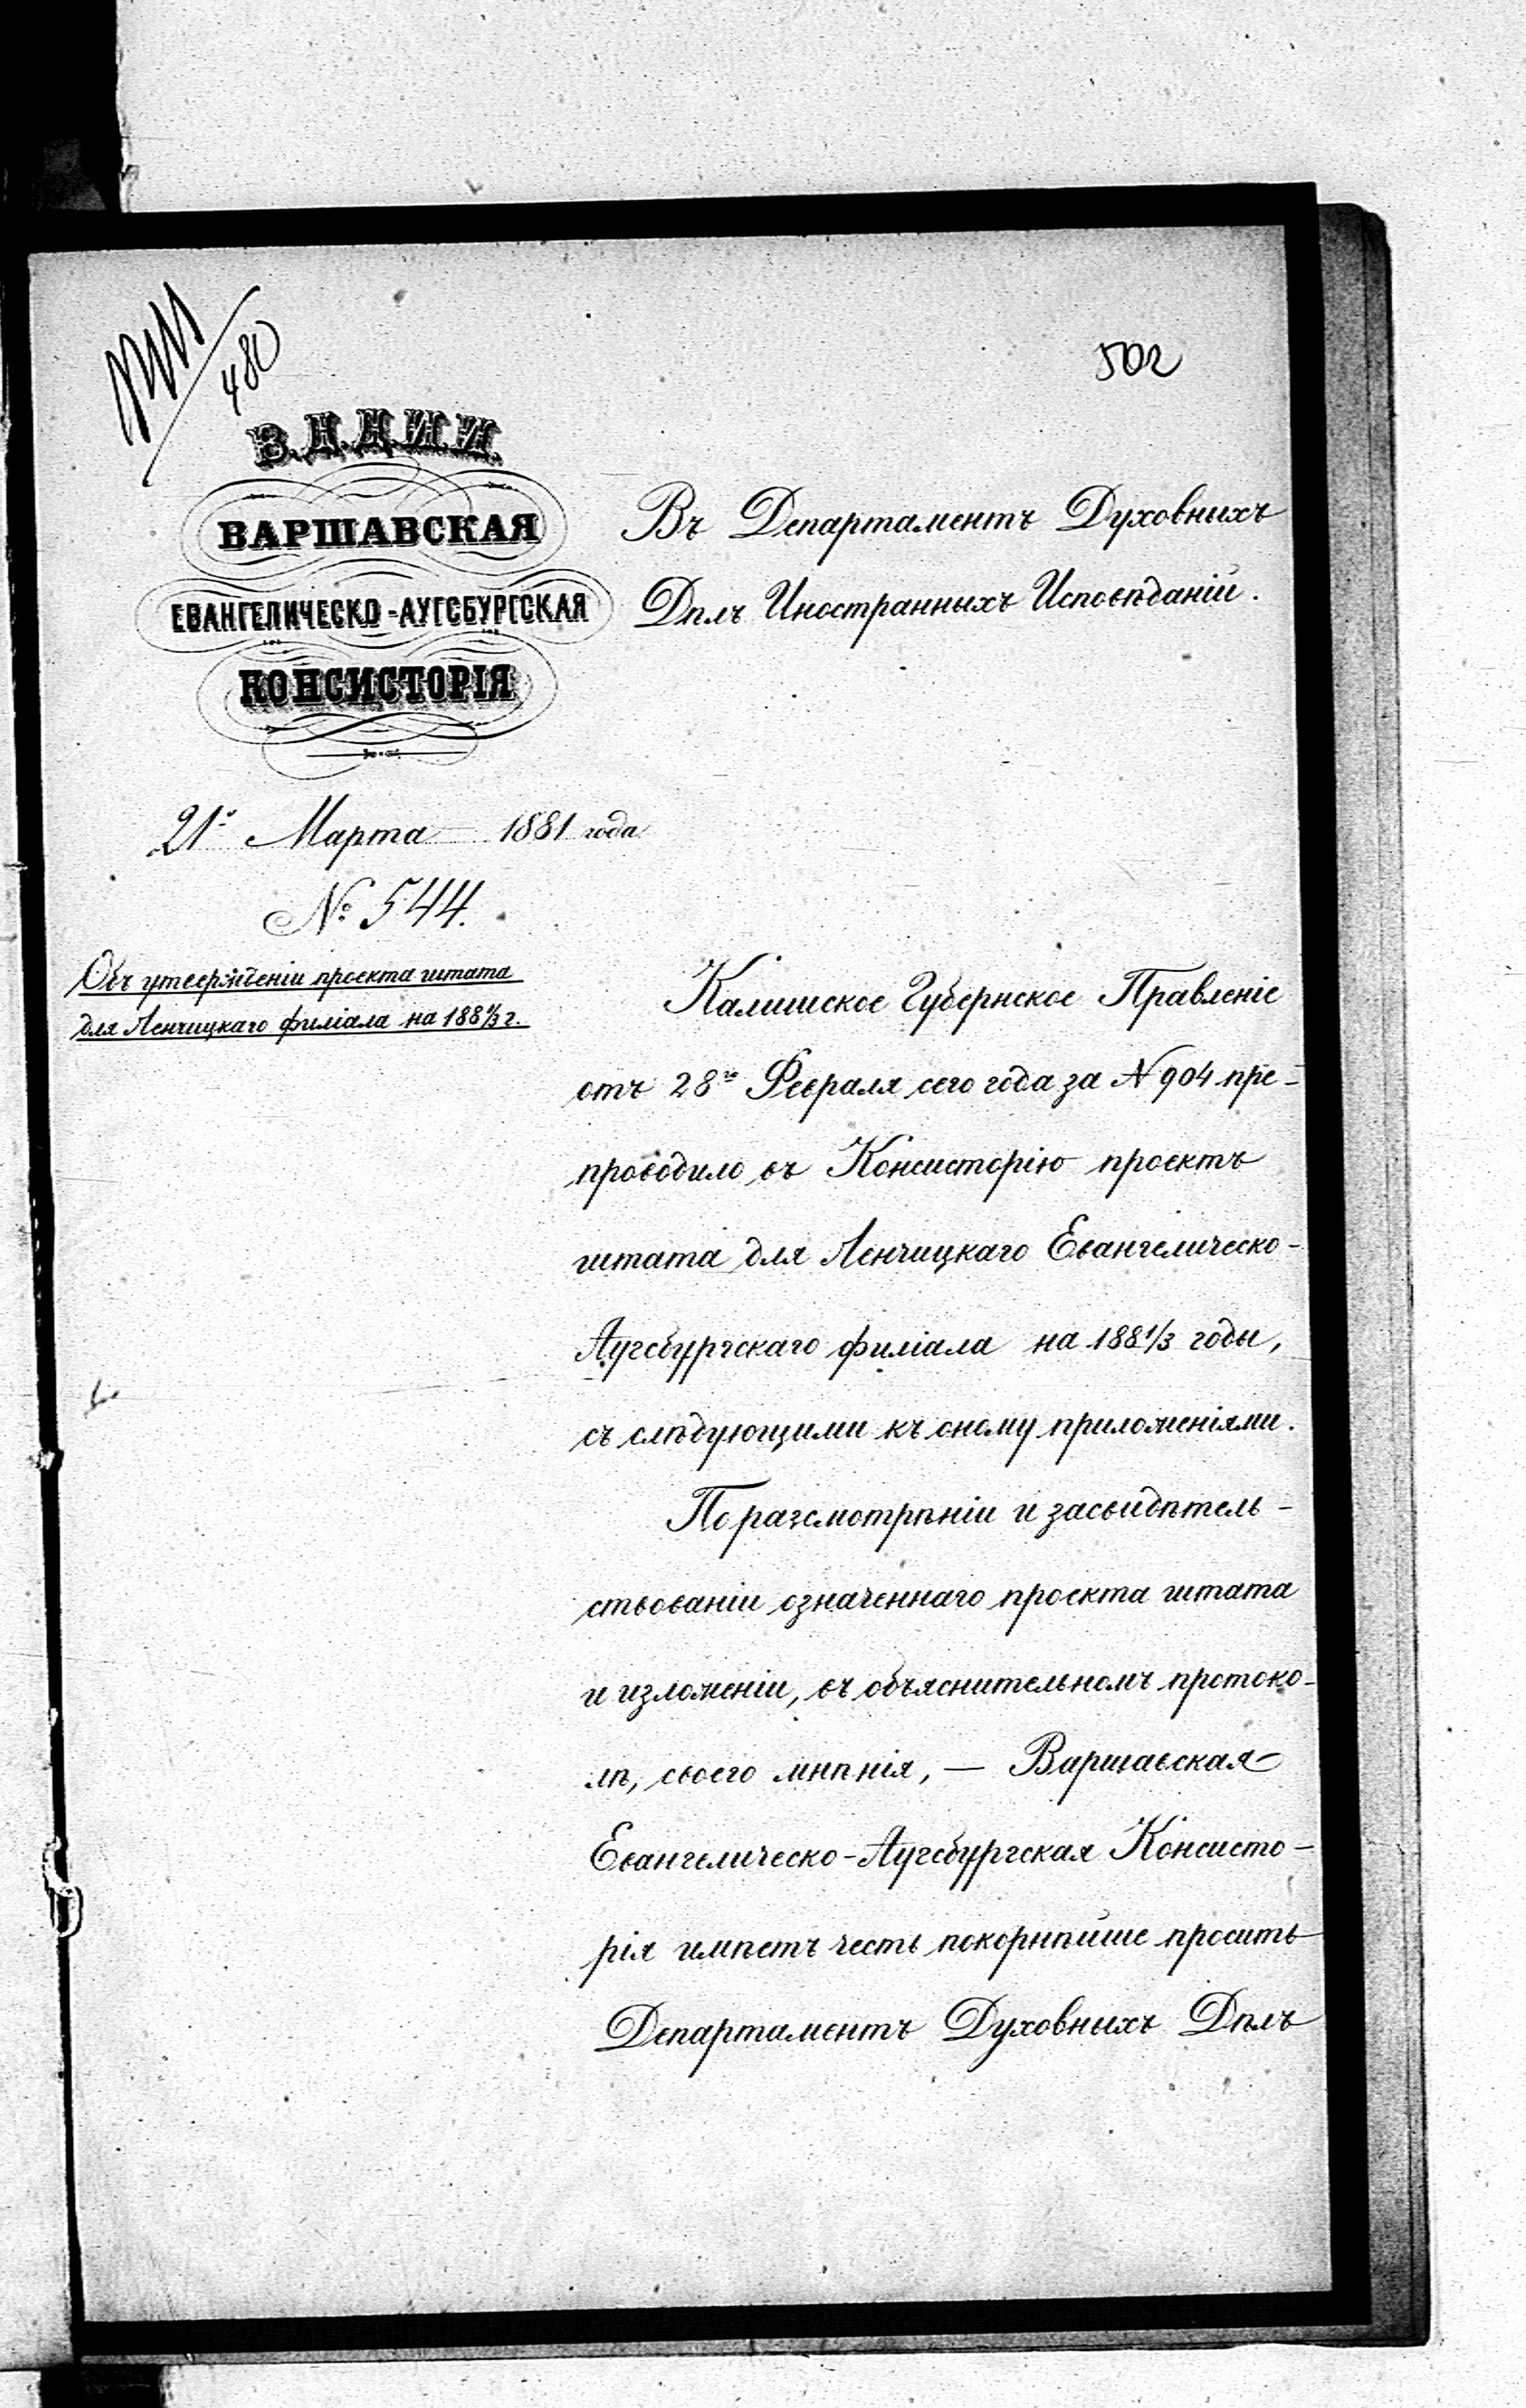 480
502
В.Д.Д.И.И.
ВАРШАВСКАЯ
ЕВАНГЕЛИЧЕСКО-АУГСБУРГСКАЯ
КОНСИСТОРІЯ
21го Марта 1881 года
№ 544.
Объ утвержденіи проекта штата
для Ленчицкаго филіала на 1881/3 г.
Въ Департаментъ Духовныхъ
Дѣлъ Иностранныхъ Исповѣданій.
Калишское Губернское Правленіе
отъ 28го Февраля сего года за N 904 пре-
проводило въ Консисторію проектъ
штата для Ленчицкаго Евангелическо-
Аугсбургскаго филіала на 1881/3 годы,
съ слѣдующими къ оному приложеніями.
По разсмотрѣніи и засвидѣтель-
ствованіи означеннаго проекта штата
и изложеніи, въ объяснительномъ протоко-
лѣ, своего мнѣнія, — Варшавская
Евангелическо-Аугсбургская Консисто-
рія имѣетъ честь покорнѣйше просить
Департаментъ Духовныхъ Дѣлъ